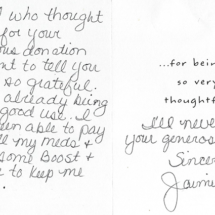 who thought
for your
donation
nt to tell you
so grateful.
already being
good use. I
een able to pay
my meds &
some Boost &
to keep me
...for bein
so very
thoughtf
I'll neve
your generos
Sincer
Jaimi